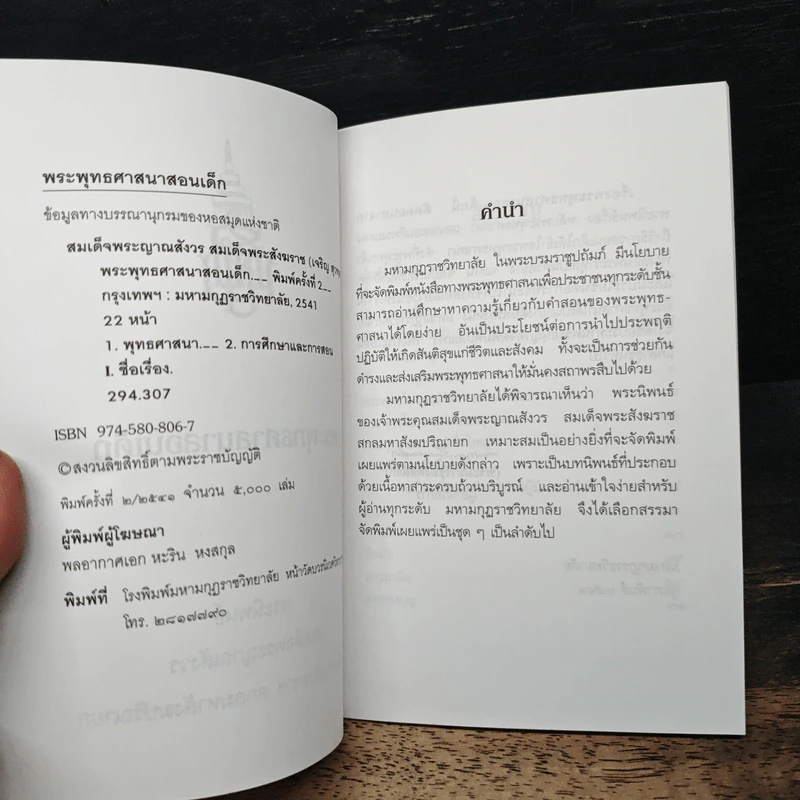 พระพุทธศาสนาสอนเด็ก
ข้อมูลทางบรรณานุกรมของหอสมุดแห่งชาติ
สมเด็จพระญาณสังวร สมเด็จพระสังฆราช (เจริญ
พระพุทธศาสนาสอนเด็ก.-- พิมพ์ครั้งที่ 2--
กรุงเทพฯ : มหามกุฏราชวิทยาลัย, 2541
22 หน้า
1. พุทธศาสนา.-- 2. การศึกษาและการสอน
I. ชื่อเรื่อง.
294.307
ISBN 974-580-806-7
©สงวนลิขสิทธิ์ตามพระราชบัญญัติ
พิมพ์ครั้งที่ ๒/๒๕๔๑ จำนวน ๕,๐๐๐ เล่ม
ผู้พิมพ์ผู้โฆษณา
พลอากาศเอก หะริน หงสกุล
พิมพ์ที่ โรงพิมพ์มหามกุฏราชวิทยาลัย หน้าวัดบวรนิเวศวิหาร
โทร. ๒๘๑๗๗๙๐
คำนำ
มหามกุฏราชวิทยาลัย ในพระบรมราชูปถัมภ์ มีนโยบาย
ที่จะจัดพิมพ์หนังสือทางพระพุทธศาสนาเพื่อประชาชนทุกระดับชั้น
สามารถอ่านศึกษาหาความรู้เกี่ยวกับคำสอนของพระพุทธ-
ศาสนาได้โดยง่าย อันเป็นประโยชน์ต่อการนำไปประพฤติ
ปฏิบัติให้เกิดสันติสุขแก่ชีวิตและสังคม ทั้งจะเป็นการช่วยกัน
ดำรงและส่งเสริมพระพุทธศาสนาให้มั่นคงสถาพรสืบไปด้วย
มหามกุฏราชวิทยาลัยได้พิจารณาเห็นว่า พระนิพนธ์
ของเจ้าพระคุณสมเด็จพระญาณสังวร สมเด็จพระสังฆราช
สกลมหาสังฆปริณายก เหมาะสมเป็นอย่างยิ่งที่จะจัดพิมพ์
เผยแพร่ตามนโยบายดังกล่าว เพราะเป็นบทนิพนธ์ที่ประกอบ
ด้วยเนื้อหาสาระครบถ้วนบริบูรณ์ และอ่านเข้าใจง่ายสำหรับ
ผู้อ่านทุกระดับ มหามกุฏราชวิทยาลัย จึงได้เลือกสรรมา
จัดพิมพ์เผยแพร่เป็นชุด ๆ เป็นลำดับไป